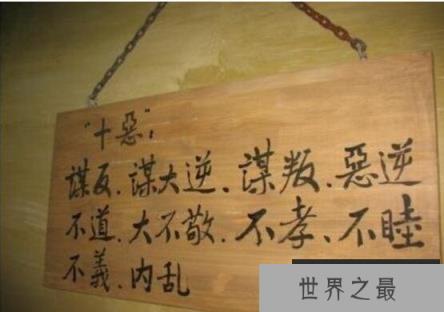 “十惡”：
謀反、謀大逆、謀叛、惡逆
不道、大不敬、不孝、不睦
不義、内乱
世界之最